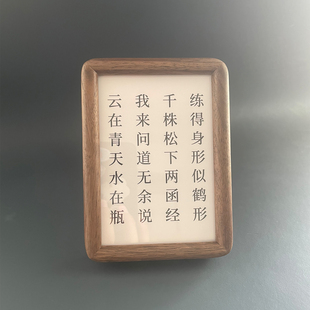 练得身形似鹤形
千株松下两函经
我来问道无余说
云在青天水在瓶